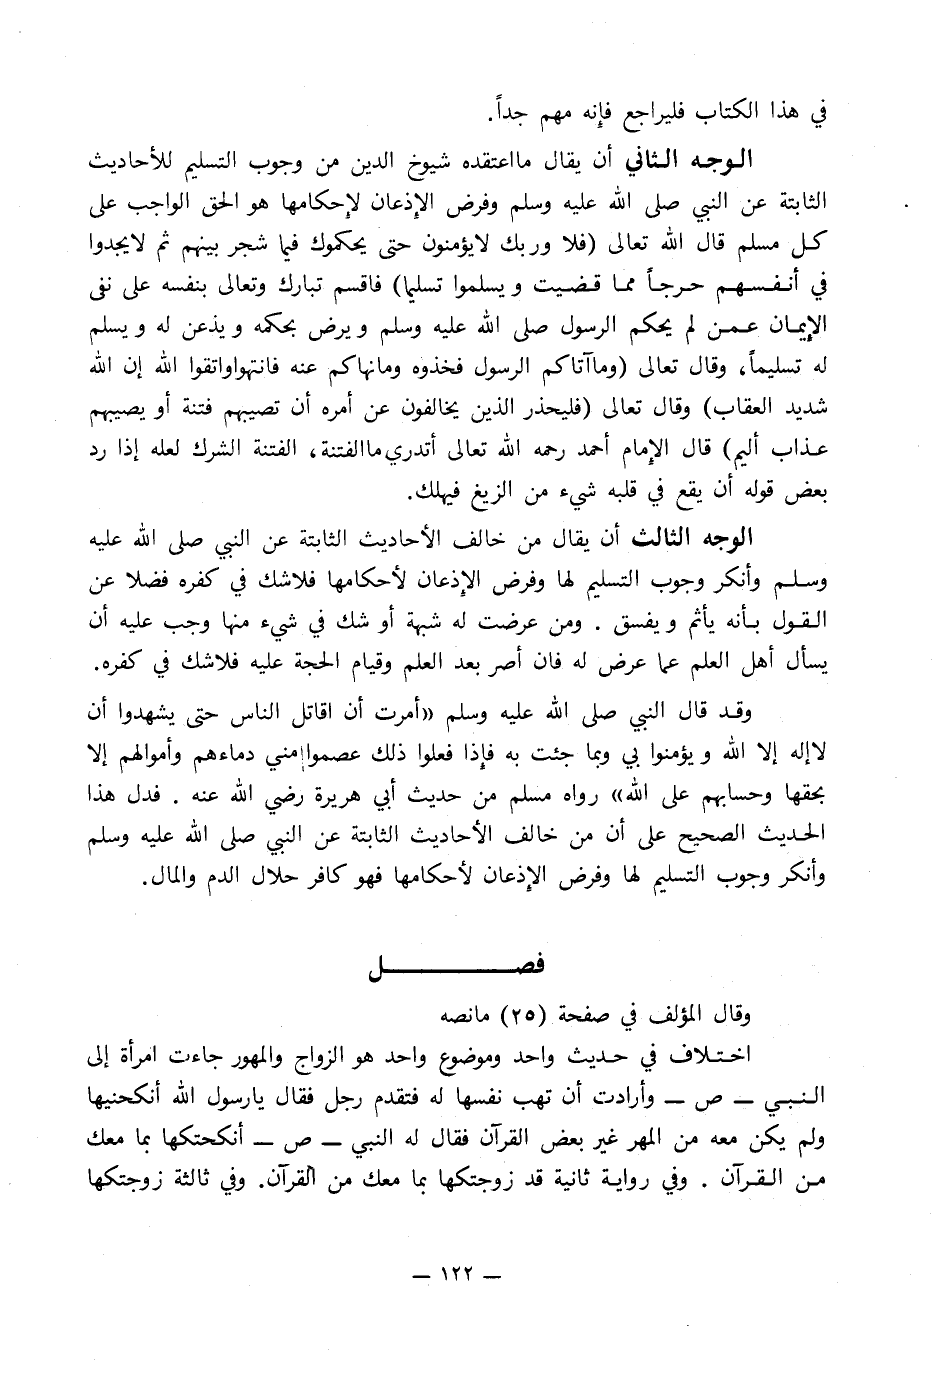 في هذا الكتاب فليراجع فإنه مهم جداً.
الوجه الثاني أن يقال مااعتقده شيوخ الدين من وجوب التسليم للأحاديث
الثابتة عن النبي صلى الله عليه وسلم وفرض الإذعان لإحكامها هو الحق الواجب على
كل مسلم قال الله تعالى (فلا وربك لايؤمنون حتى يحكموك فيما شجر بينهم ثم لايجدوا
في أنفسهم حرجاً مما قضيت ويسلموا تسليما) فاقسم تبارك وتعالى بنفسه على نفى
الإيمان عمن لم يحكم الرسول صلى الله عليه وسلم ويرض بحكمه ويذعن له ويسلم
له تسليماً، وقال تعالى (وماآتاكم الرسول فخذوه ومانهاكم عنه فانتهواواتقوا الله إن الله
شديد العقاب) وقال تعالى (فليحذر الذين يخالفون عن أمره أن تصيبهم فتنة أو يصيبهم
عذاب أليم) قال الإمام أحمد رحمه الله تعالى أتدري ماالفتنة، الفتنة الشرك لعله إذا رد
بعض قوله أن يقع في قلبه شيء من الزيغ فيهلك.
الوجه الثالث أن يقال من خالف الأحاديث الثابتة عن النبي صلى الله عليه
وسلم وأنكر وجوب التسليم لها وفرض الإذعان لأحكامها فلاشك في كفره فضلا عن
القول بأنه يأثم ويفسق . ومن عرضت له شبهة أو شك في شيء منها وجب عليه أن
يسأل أهل العلم عما عرض له فان أصر بعد العلم وقيام الحجة عليه فلاشك في كفره.
وقد قال النبي صلى الله عليه وسلم «أمرت أن اقاتل الناس حتى يشهدوا أن
لاإله إلا الله ويؤمنوا بي وبما جئت به فإذا فعلوا ذلك عصموا مني دماءهم وأموالهم إلا
بحقها وحسابهم على الله» رواه مسلم من حديث أبي هريرة رضي الله عنه . فدل هذا
الحديث الصحيح على أن من خالف الأحاديث الثابتة عن النبي صلى الله عليه وسلم
وأنكر وجوب التسليم لها وفرض الإذعان لأحكامها فهو كافر حلال الدم والمال.
فصــــــــــل
وقال المؤلف في صفحة (٢٥) مانصه
اختلاف في حديث واحد وموضوع واحد هو الزواج والمهور جاءت امرأة إلى
النبي ــ ص ــ وأرادت أن تهب نفسها له فتقدم رجل فقال يارسول الله أنكحنيها
ولم يكن معه من المهر غير بعض القرآن فقال له النبي ــ ص ــ أنكحتكها بما معك
من القرآن . وفي رواية ثانية قد زوجتكها بما معك من القرآن. وفي ثالثة زوجتكها
ــ ١٢٢ ــ